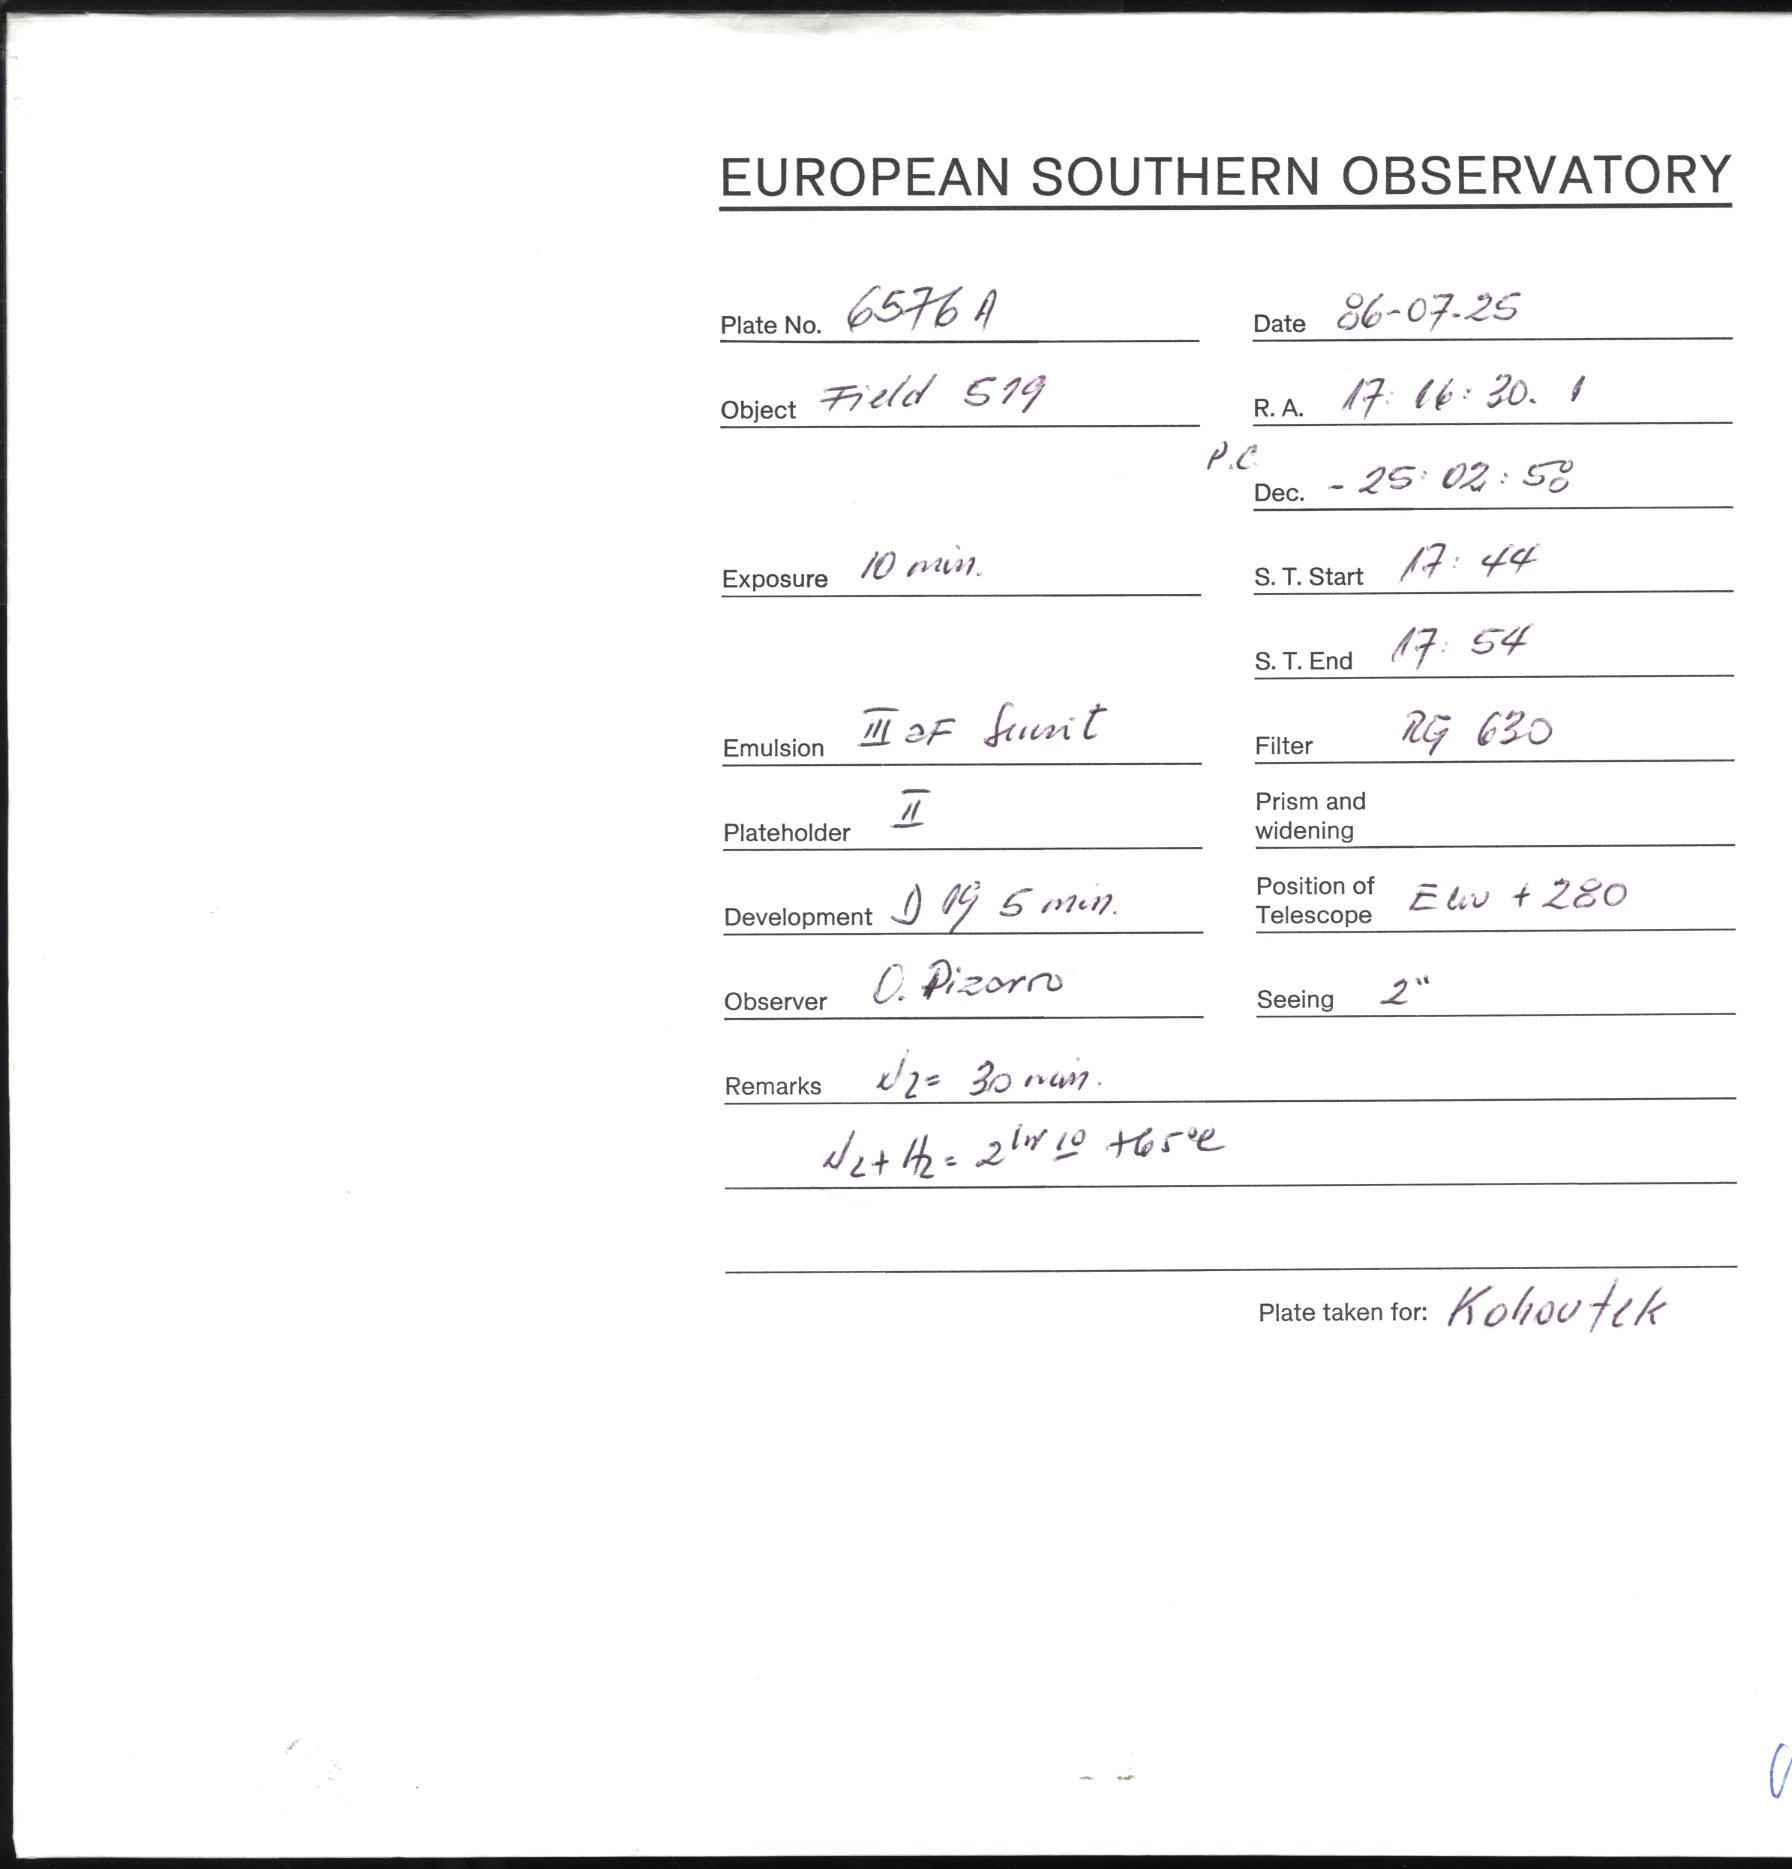 EUROPEAN SOUTHERN OBSERVATORY
Plate No. 6576 A Date 86-07-25
Object Field 519 R. A. 17: 16: 30. 1
P.C.
Dec. - 25: 02: 58
Exposure 10 min. S. T. Start 17: 44
S. T. End 17: 54
Emulsion III aF Filter RG 630
Plateholder II Prism and
widening
Development D 19 5 min. Position of
Telescope + 280
Observer O. Pizarro Seeing 2"
Remarks N2= 30 min.
N2+H2= 2 hr 10 +65°C
Plate taken for: Kohoutek